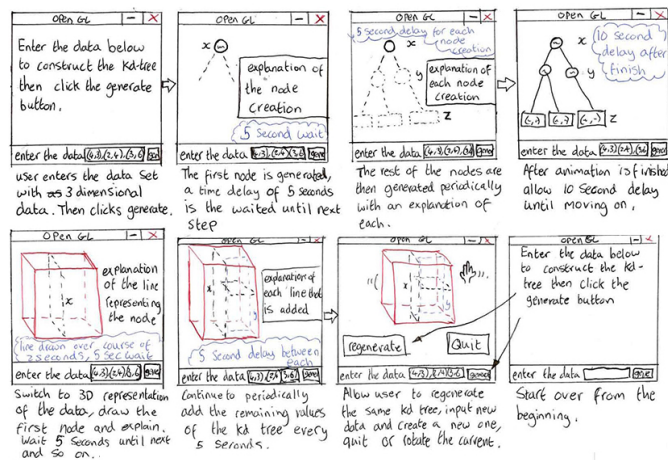 OPEN GL
Enter the data below
to construct the kd-tree
then click the generate
button.
enter the data (4,3),(2,4),(3,6)
user enters the Data Set
with 3 dimensional
data. Then clicks generate.
OPEN GL
x
explanation of
the node
creation
5 second wait
enter the data (4,3),(2,4),(3,6)
The first node is generated,
a time delay of 5 seconds
is the waited until next
step
OPEN GL
5 second delay for each
node
creation
y
explanation
of each node
creation
z
enter the data
The rest of the nodes are
then generated periodically
with an explanation of
each.
OPEN GL
10 second
delay after
finish
x
y
z
enter the data
After animation is finished
allow 10 second delay
until moving on.
OPEN GL
explanation
of the line
representing
the node
x
line drawn over course of
2 seconds, 5 sec wait
enter the data (4,3),(2,4),(3,6)
Switch to 3D representation
of the data, draw the
first node and explain.
Wait 5 Seconds until next
and so on..
OPEN GL
explanation of
each line that
is added
x
y
5 Second delay between
each
enter the data
Continue to periodically
add the remaining values
of the kd tree every
5 Seconds.
OPEN GL
x
y
regenerate
Quit
enter the data
Allow user to regenerate
the same kd tree, input new
data and create a new one,
quit or rotate the current.
OPEN GL
Enter the data below
to construct the kd-
tree then click the
generate button
enter the data
Start over from the
beginning.